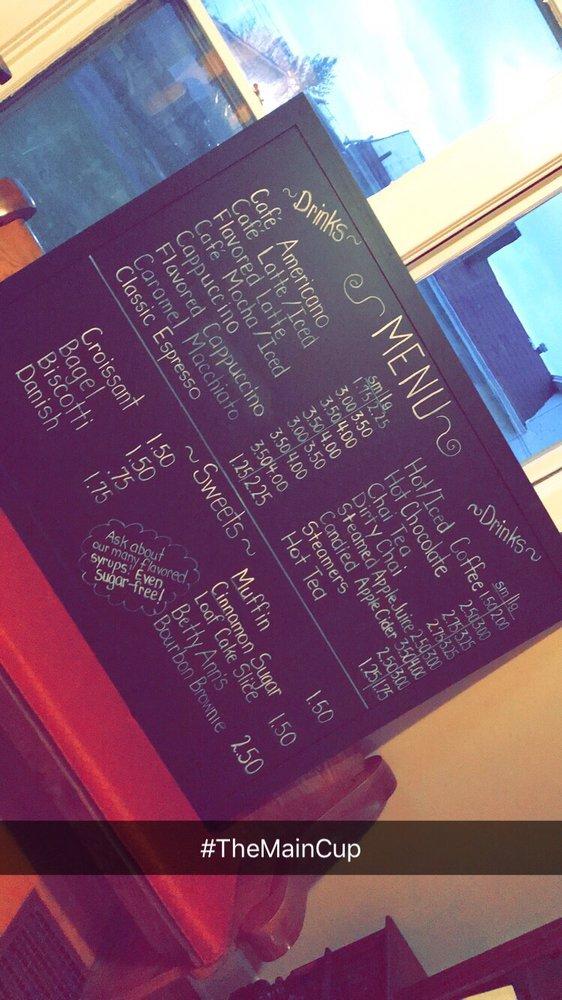 MENU
~Drinks~
sm/lg.
Café Americano 1.75/2.25
Café Latte/Iced 3.00/3.50
Flavored Latte 3.50/4.00
Café Mocha/Iced 3.50/4.00
Cappuccino 3.00/3.50
Flavored Cappuccino 3.50/4.00
Caramel Macchiato 3.50/4.00
Classic Espresso 1.25/2.25
~Drinks~
sm/lg.
Hot/Iced Coffee 1.50/2.00
Hot Chocolate 2.50/3.00
Chai Tea 2.75/3.25
Dirty Chai 2.75/3.25
Steamed Apple Juice 2.50/3.00
Candied Apple Cider 3.50/4.00
Steamers 2.50/3.00
Hot Tea 1.25/1.75
~Sweets~
Croissant 1.50
Bagel .75
Biscotti 1.50
Danish 1.75
Ask about
our many flavored
syrups! Even
Sugar-free!
Muffin 1.50
Cinnamon Sugar
Loaf Cake Slice 1.50
Betty Ann's
Bourbon Brownie 2.50
#TheMainCup